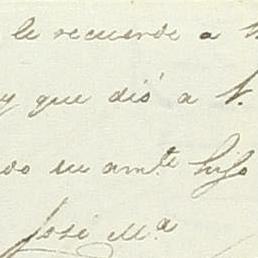 le recuerde a
y que dió a V.
su amte hijo
José Ma